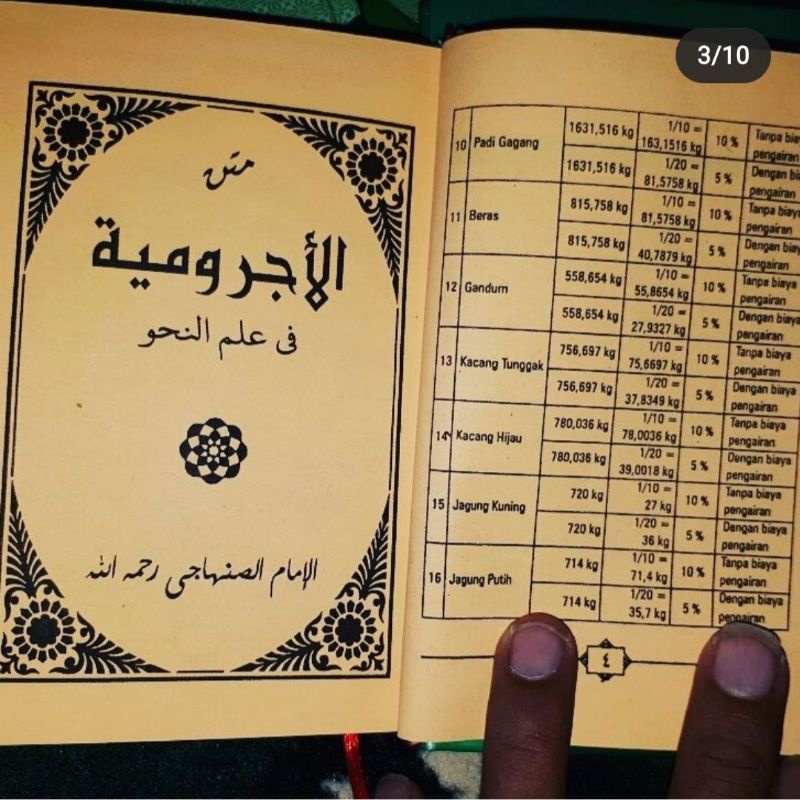 3/10
متن
الأجرومية
في علم النحو
الإمام الصنهاجي رحمه الله
10 Padi Gagang 1631,516 kg 1/10 = 163,1516 kg 10 % Tanpa pengairan
1631,516 kg 1/20 = 81,5758 kg 5 % Dengan pengairan
11 Beras 815,758 kg 1/10 = 81,5758 kg 10 % Tanpa biaya pengairan
815,758 kg 1/20 = 40,7879 kg 5 % Dengan pengairan
12 Gandum 558,654 kg 1/10 = 55,8654 kg 10 % Tanpa biaya pengairan
558,654 kg 1/20 = 27,9327 kg 5 % Dengan biaya pengairan
13 Kacang Tunggak 756,697 kg 1/10 = 75,6697 kg 10 % Tanpa biaya pengairan
756,697 kg 1/20 = 37,8349 kg 5 % Dengan biaya pengairan
14 Kacang Hijau 780,036 kg 1/10 = 78,0036 kg 10 % Tanpa biaya pengairan
780,036 kg 1/20 = 39,0018 kg 5 % Dengan biaya pengairan
15 Jagung Kuning 720 kg 1/10 = 27 kg 10 % Tanpa biaya pengairan
720 kg 1/20 = 36 kg 5 % Dengan biaya pengairan
16 Jagung Putih 714 kg 1/10 = 71,4 kg 10 % Tanpa biaya pengairan
714 kg 1/20 = 35,7 kg 5 % Dengan biaya pengairan
٤